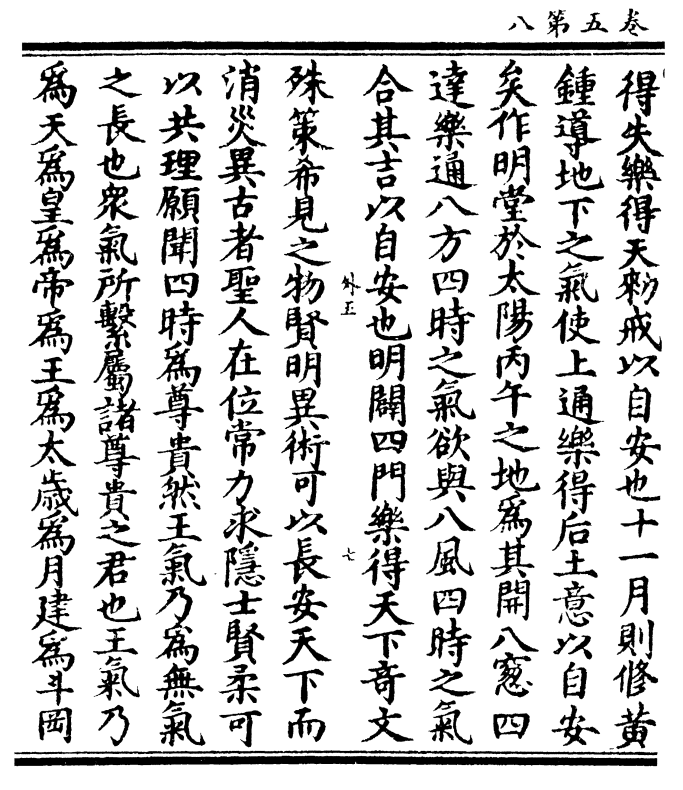 卷五第八
得失樂得天勑戒以自安也十一月則修黃
鍾導地下之氣使上通樂得后土意以自安
矣作明堂於太陽丙午之地爲其開八窓四
達樂通八方四時之氣欲與八風四時之氣
合其吉以自安也明闢四門樂得天下竒文
外五
七
殊策希見之物賢明異術可以長安天下而
消災異古者聖人在位常力求隱士賢柔可
以共理願聞四時爲尊貴然王氣乃爲無氣
之長也衆氣所繫屬諸尊貴之君也王氣乃
爲天爲皇爲帝爲王爲太歲爲月建爲斗岡